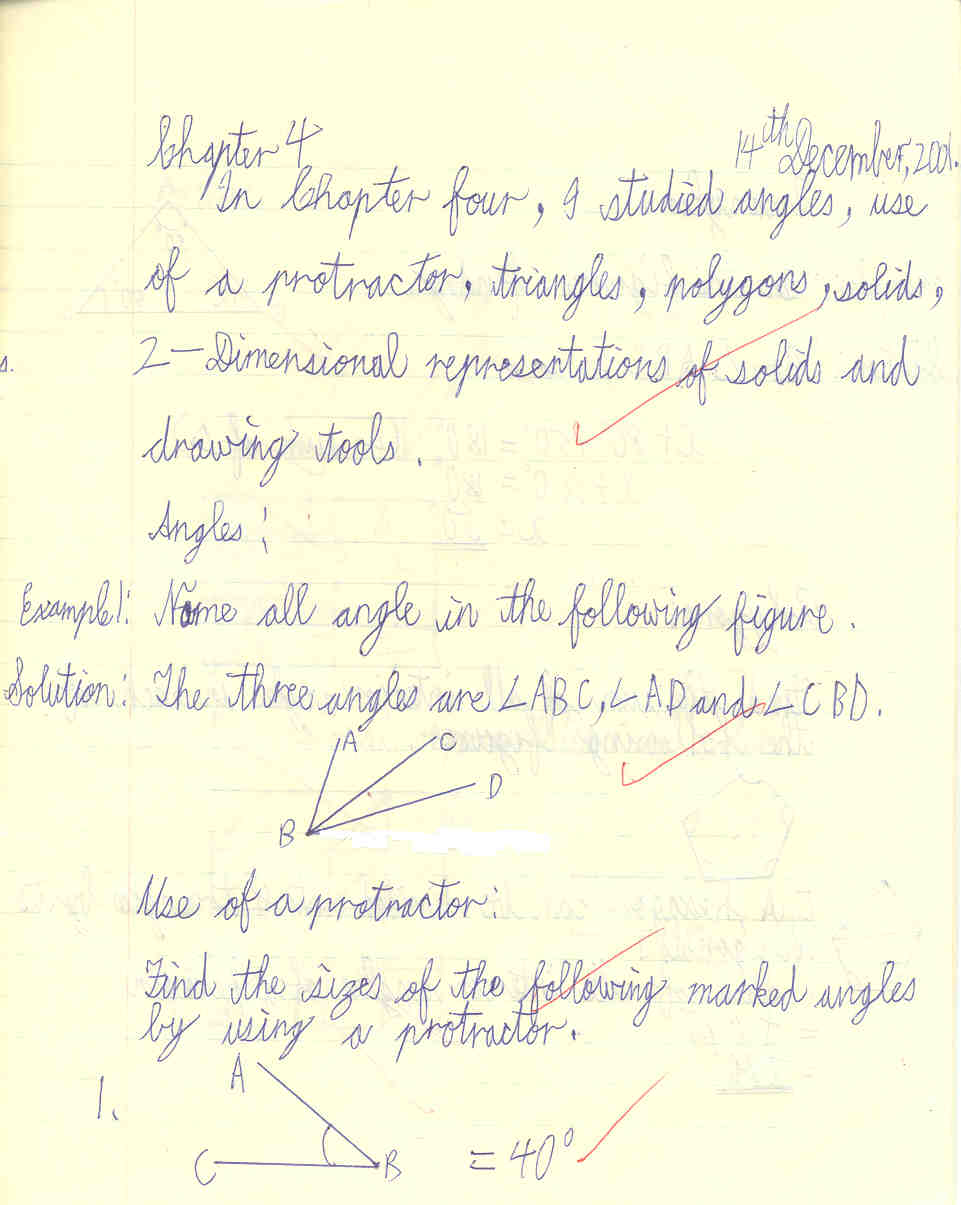 Chapter 4
14th December, 2001.
In Chapter four, I studied angles, use
of a protractor, triangles, polygons, solids,
s.
2-Dimensional representations of solids and
drawing tools.
Angles:
Example1: Name all angle in the following figure.
Solution: The three angles are ∠ABC, ∠AD and ∠CBD.
A
C
D
B
Use of a protractor:
Find the sizes of the following marked angles
by using a protractor.
1.
A
C
B
= 40°